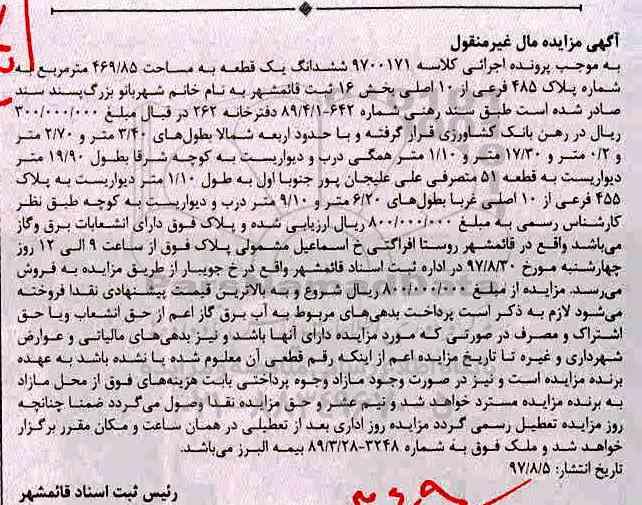 آگهی مزایده مال غیرمنقول
به موجب پرونده اجرائی کلاسه ۹۷۰۰۱۷۱ ششدانگ یک قطعه به مساحت ۴۶۹/۸۵ مترمربع به
شماره پلاک ۴۸۵ فرعی از ۱۰ اصلی بخش ۱۶ ثبت قائمشهر به نام خانم شهربانو بزرگ‌پسند سند
صادر شده است طبق سند رهنی شماره ۶۴۲-۸۹/۴/۱ دفترخانه ۲۶۲ در قبال مبلغ ۳۰۰/۰۰۰/۰۰۰
ریال در رهن بانک کشاورزی قرار گرفته و با حدود اربعه شمالا بطول‌های ۳/۴۰ متر و ۲/۷۰ متر
و ۰/۲ متر و ۱۷/۳۰ متر و ۱/۱۰ متر همگی درب و دیواریست به کوچه شرقا بطول ۱۹/۹۰ متر
دیواریست به قطعه ۵۱ متصرفی علی علیجان پور جنوبا اول به طول ۱/۱۰ متر دیواریست به پلاک
۴۵۵ فرعی از ۱۰ اصلی غربا بطول‌های ۶/۲۰ متر و ۹/۱۰ متر درب و دیواریست به کوچه طبق نظر
کارشناس رسمی به مبلغ ۸۰۰/۰۰۰/۰۰۰ ریال ارزیابی شده و پلاک فوق دارای انشعابات برق وگاز
میباشد واقع در قائمشهر روستا افراگتی خ اسماعیل مشمولی پلاک فوق از ساعت ۹ الی ۱۲ روز
چهارشنبه مورخ ۹۷/۸/۳۰ در اداره ثبت اسناد قائمشهر واقع در خ جویبار از طریق مزایده به فروش
می‌رسد. مزایده از مبلغ ۸۰۰/۰۰۰/۰۰۰ ریال شروع و به بالاترین قیمت پیشنهادی نقدا فروخته
می‌شود لازم به ذکر است پرداخت بدهی‌های مربوط به آب برق گاز اعم از حق انشعاب ویا حق
اشتراک و مصرف در صورتی که مورد مزایده دارای آنها باشد و نیز بدهی‌های مالیاتی و عوارض
شهرداری و غیره تا تاریخ مزایده اعم از اینکه رقم قطعی آن معلوم شده یا نشده باشد به عهده
برنده مزایده است و نیز در صورت وجود مازاد وجوه پرداختی بابت هزینه‌های فوق از محل مازاد
به برنده مزایده مسترد خواهد شد و نیم عشر و حق مزایده نقدا وصول می‌گردد ضمنا چنانچه
روز مزایده تعطیل رسمی گردد مزایده روز اداری بعد از تعطیلی در همان ساعت و مکان مقرر برگزار
خواهد شد و ملک فوق به شماره ۳۲۴۸-۸۹/۳/۲۸ بیمه البرز می‌باشد.
تاریخ انتشار: ۹۷/۸/۵
رئیس ثبت اسناد قائمشهر